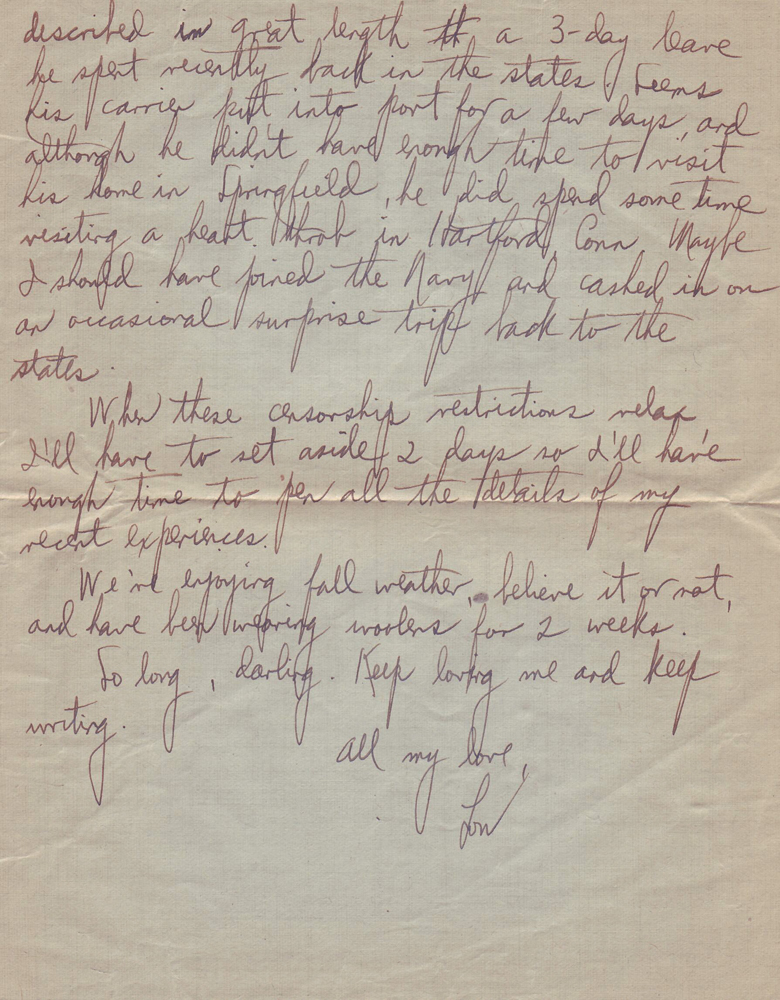 described in great length a 3-day leave
he spent recently back in the states. Seems
his carrier put into port for a few days, and
although he didn't have enough time to visit
his home in Springfield, he did spend some time
visiting a heart throb in Hartford, Conn. Maybe
I should have joined the Navy and cashed in on
an occasional surprise trip back to the
states.
When these censorship restrictions relax
I'll have to set aside 2 days so I'll have
enough time to pen all the details of my
recent experiences.
We're enjoying fall weather, believe it or not,
and have been wearing woolens for 2 weeks.
So long, darling. Keep loving me and keep
writing.
All my love,
Lou